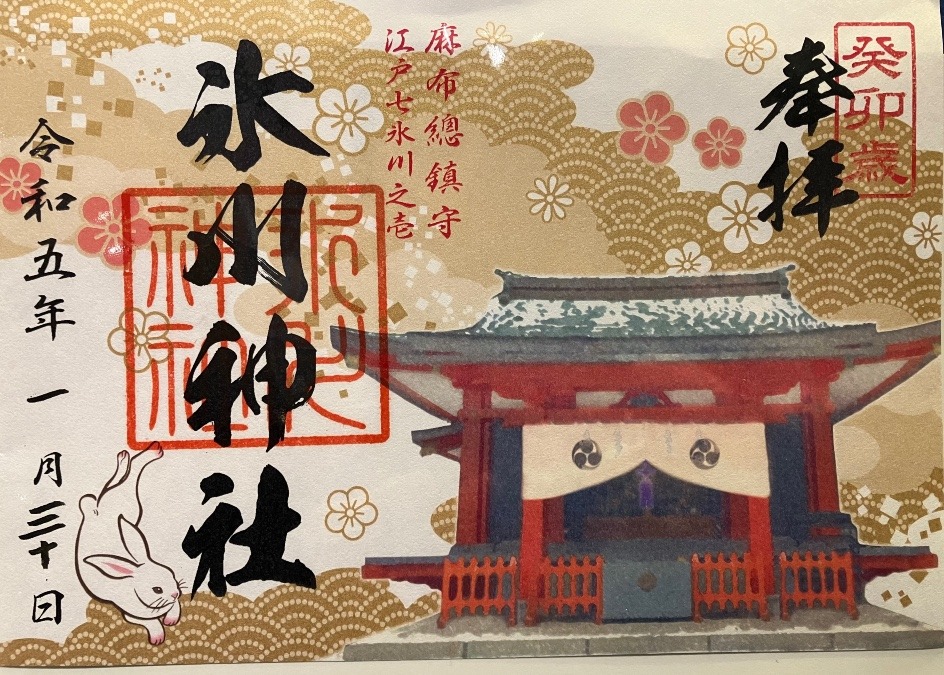 癸卯歳
奉拝
麻布總鎮守
江戸七氷川之壱
氷川神社
氷川神社
令和五年一月三十日